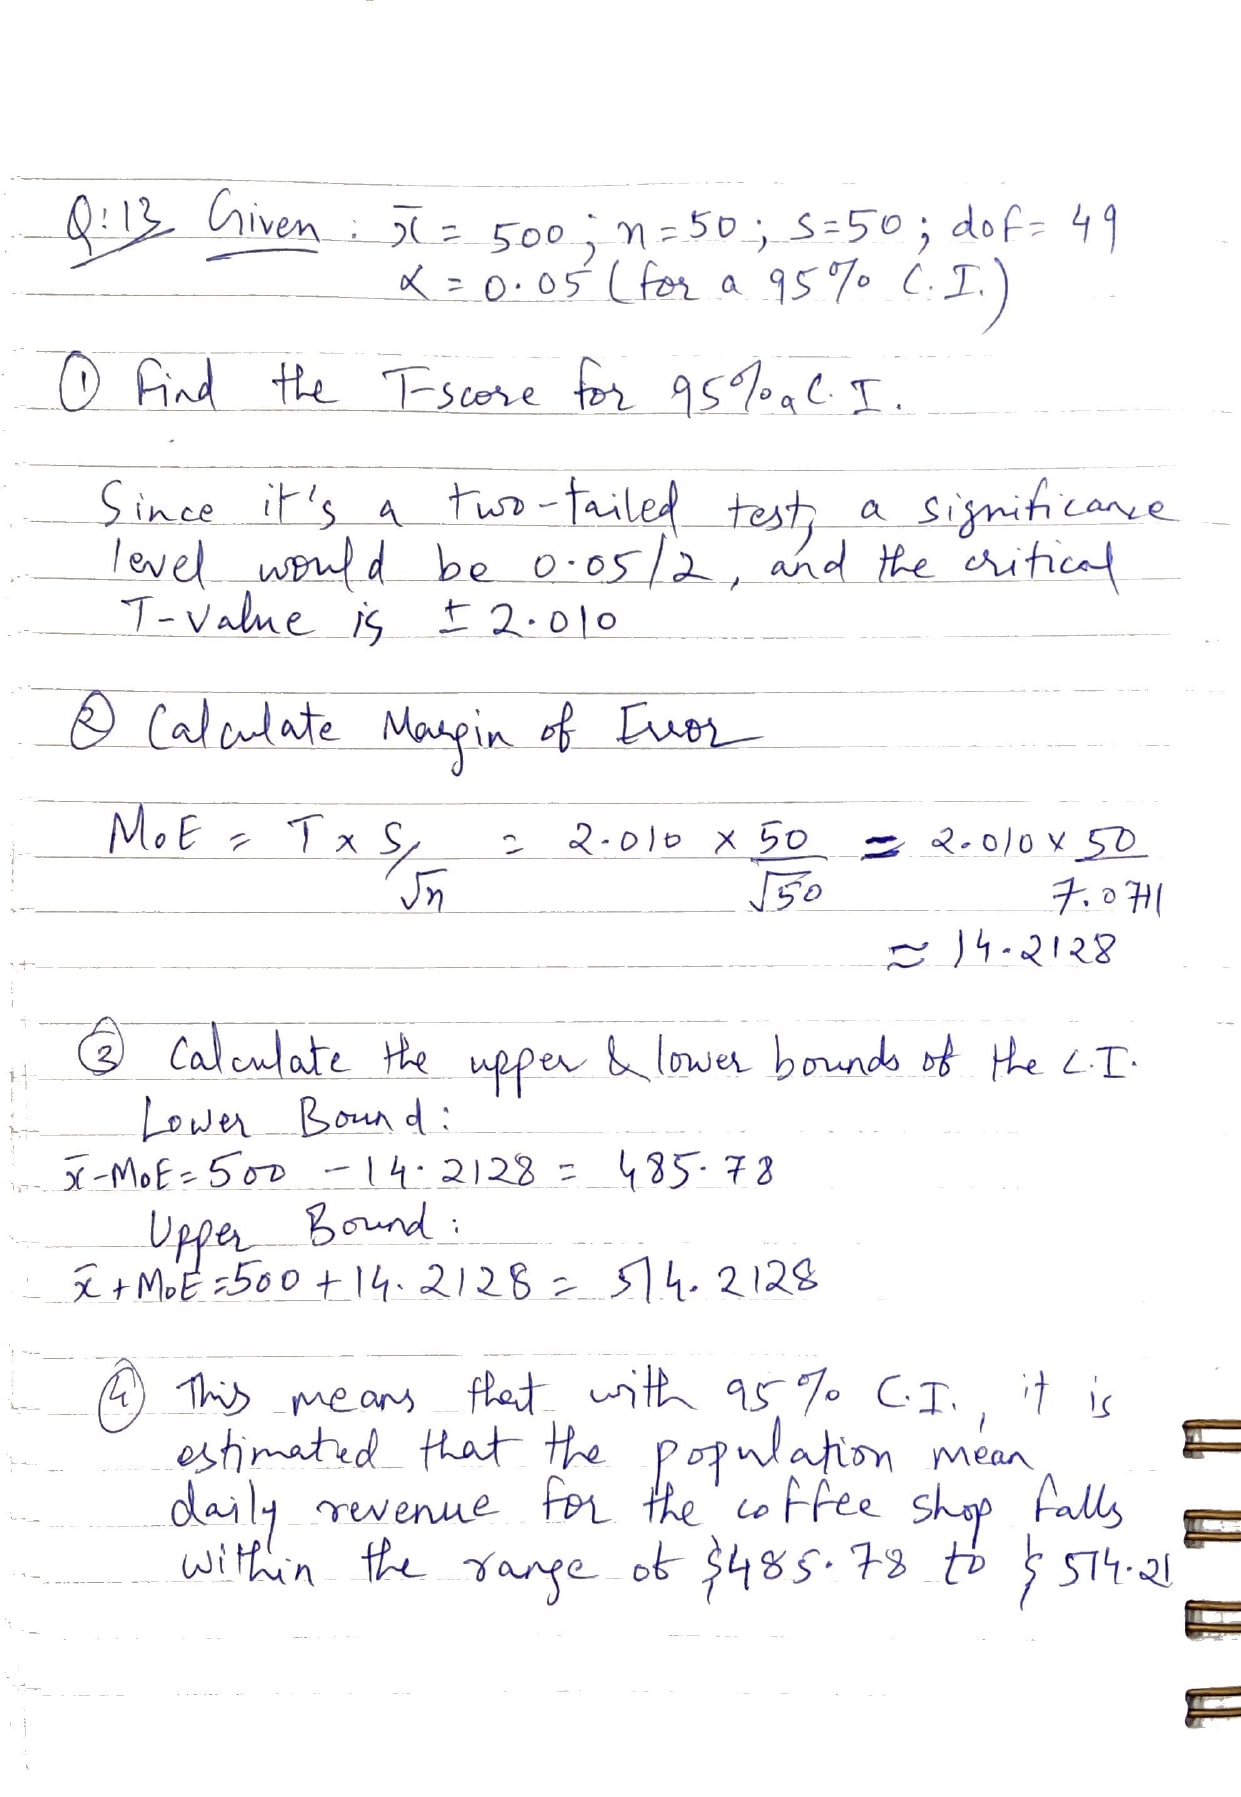 Q:13 Given : x̄ = 500 ; n=50 ; s=50 ; dof= 49
α = 0.05 (for a 95% C.I.)
① Find the T-score for 95% a C.I.
Since it's a two-tailed test, a significance
level would be 0.05/2, and the critical
T-value is ± 2.010
② Calculate Margin of Error
MoE = T x S/√n = 2.010 x 50/√50 = 2.010 x 50/7.0711
≈ 14.2128
③ Calculate the upper & lower bounds of the C.I.
Lower Bound :
x̄-MoE = 500 - 14.2128 = 485.78
Upper Bound :
x̄ + MoE = 500 + 14.2128 = 514.2128
④ This means that with 95% C.I., it is
estimated that the population mean
daily revenue for the coffee shop falls
within the range of $485.78 to $514.21